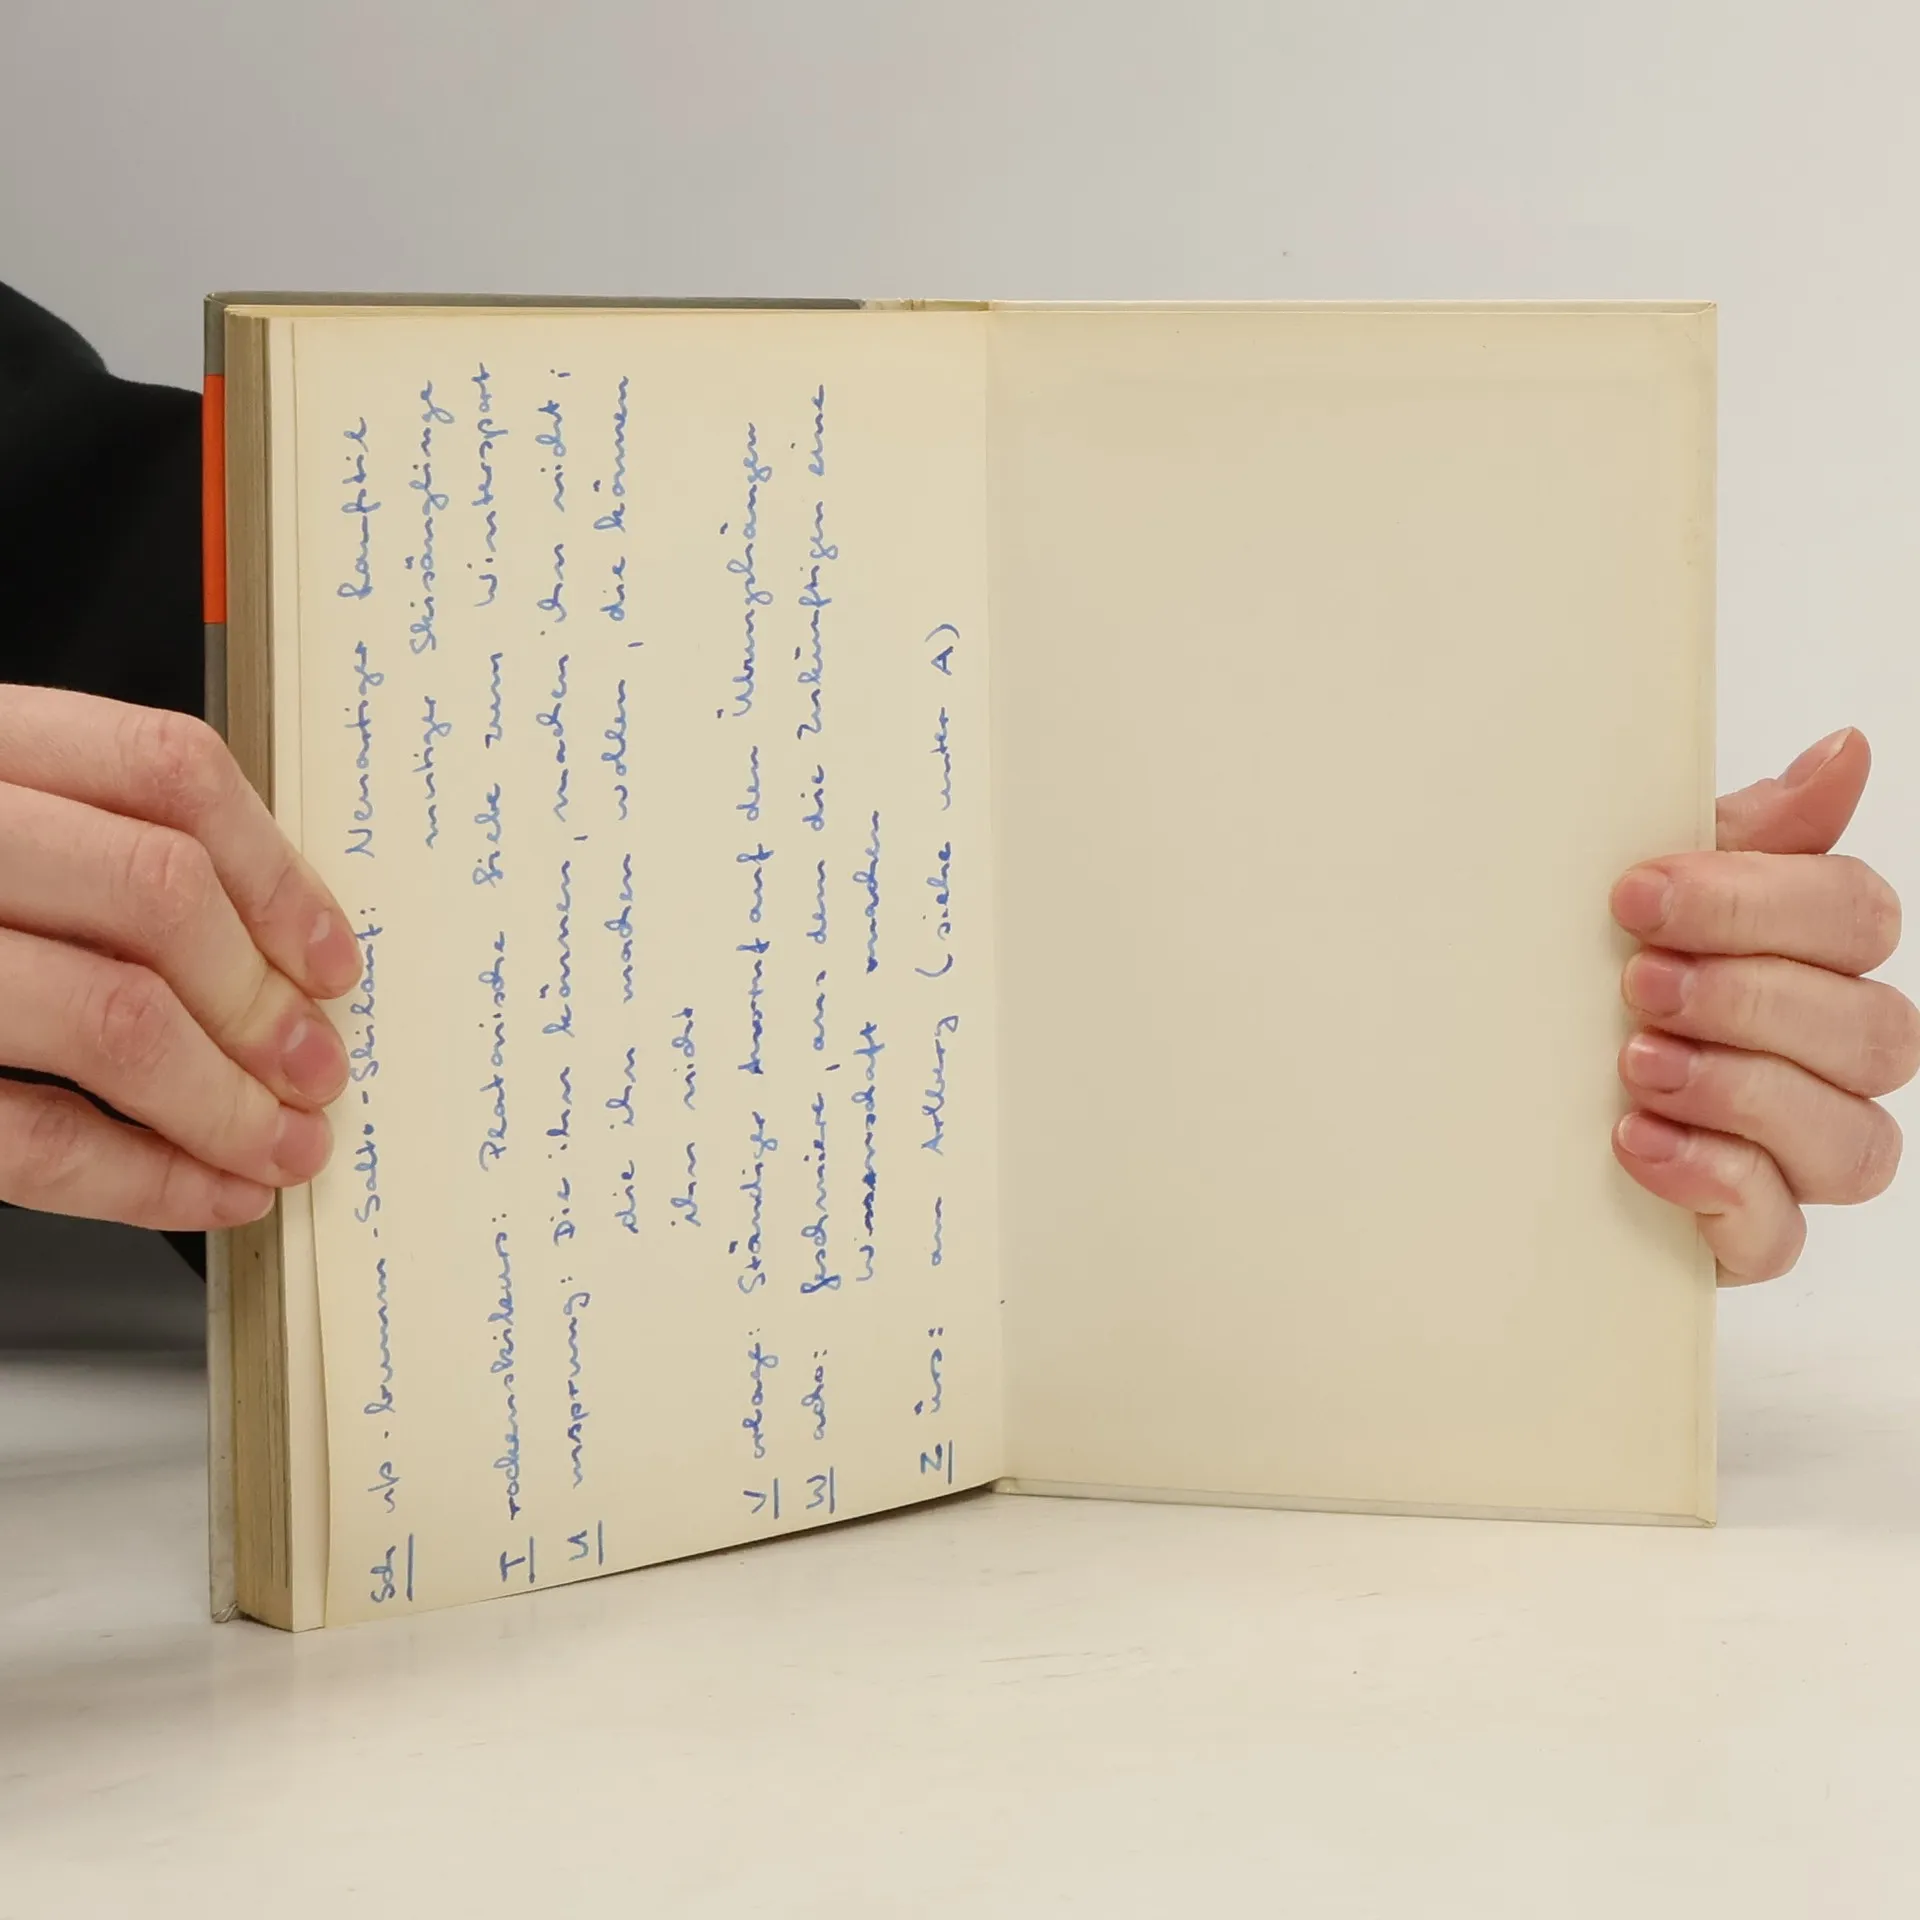 Sch up-bumm-Salto-Skilauf: Neuartiger Laufstil
mutiger Skisäuglinge
T rockenskikurs: Platonische Liebe zum Wintersport
U msprung: Die ihn können, machen ihn nicht;
die ihn machen wollen, die können
ihn nicht
V orlage: Ständiger Ausruf auf den Übungshängen
W achs: geschmiere, aus dem die Zünftigen eine
Wissenschaft machen
Z ürs: am Arlberg (siehe unter A)